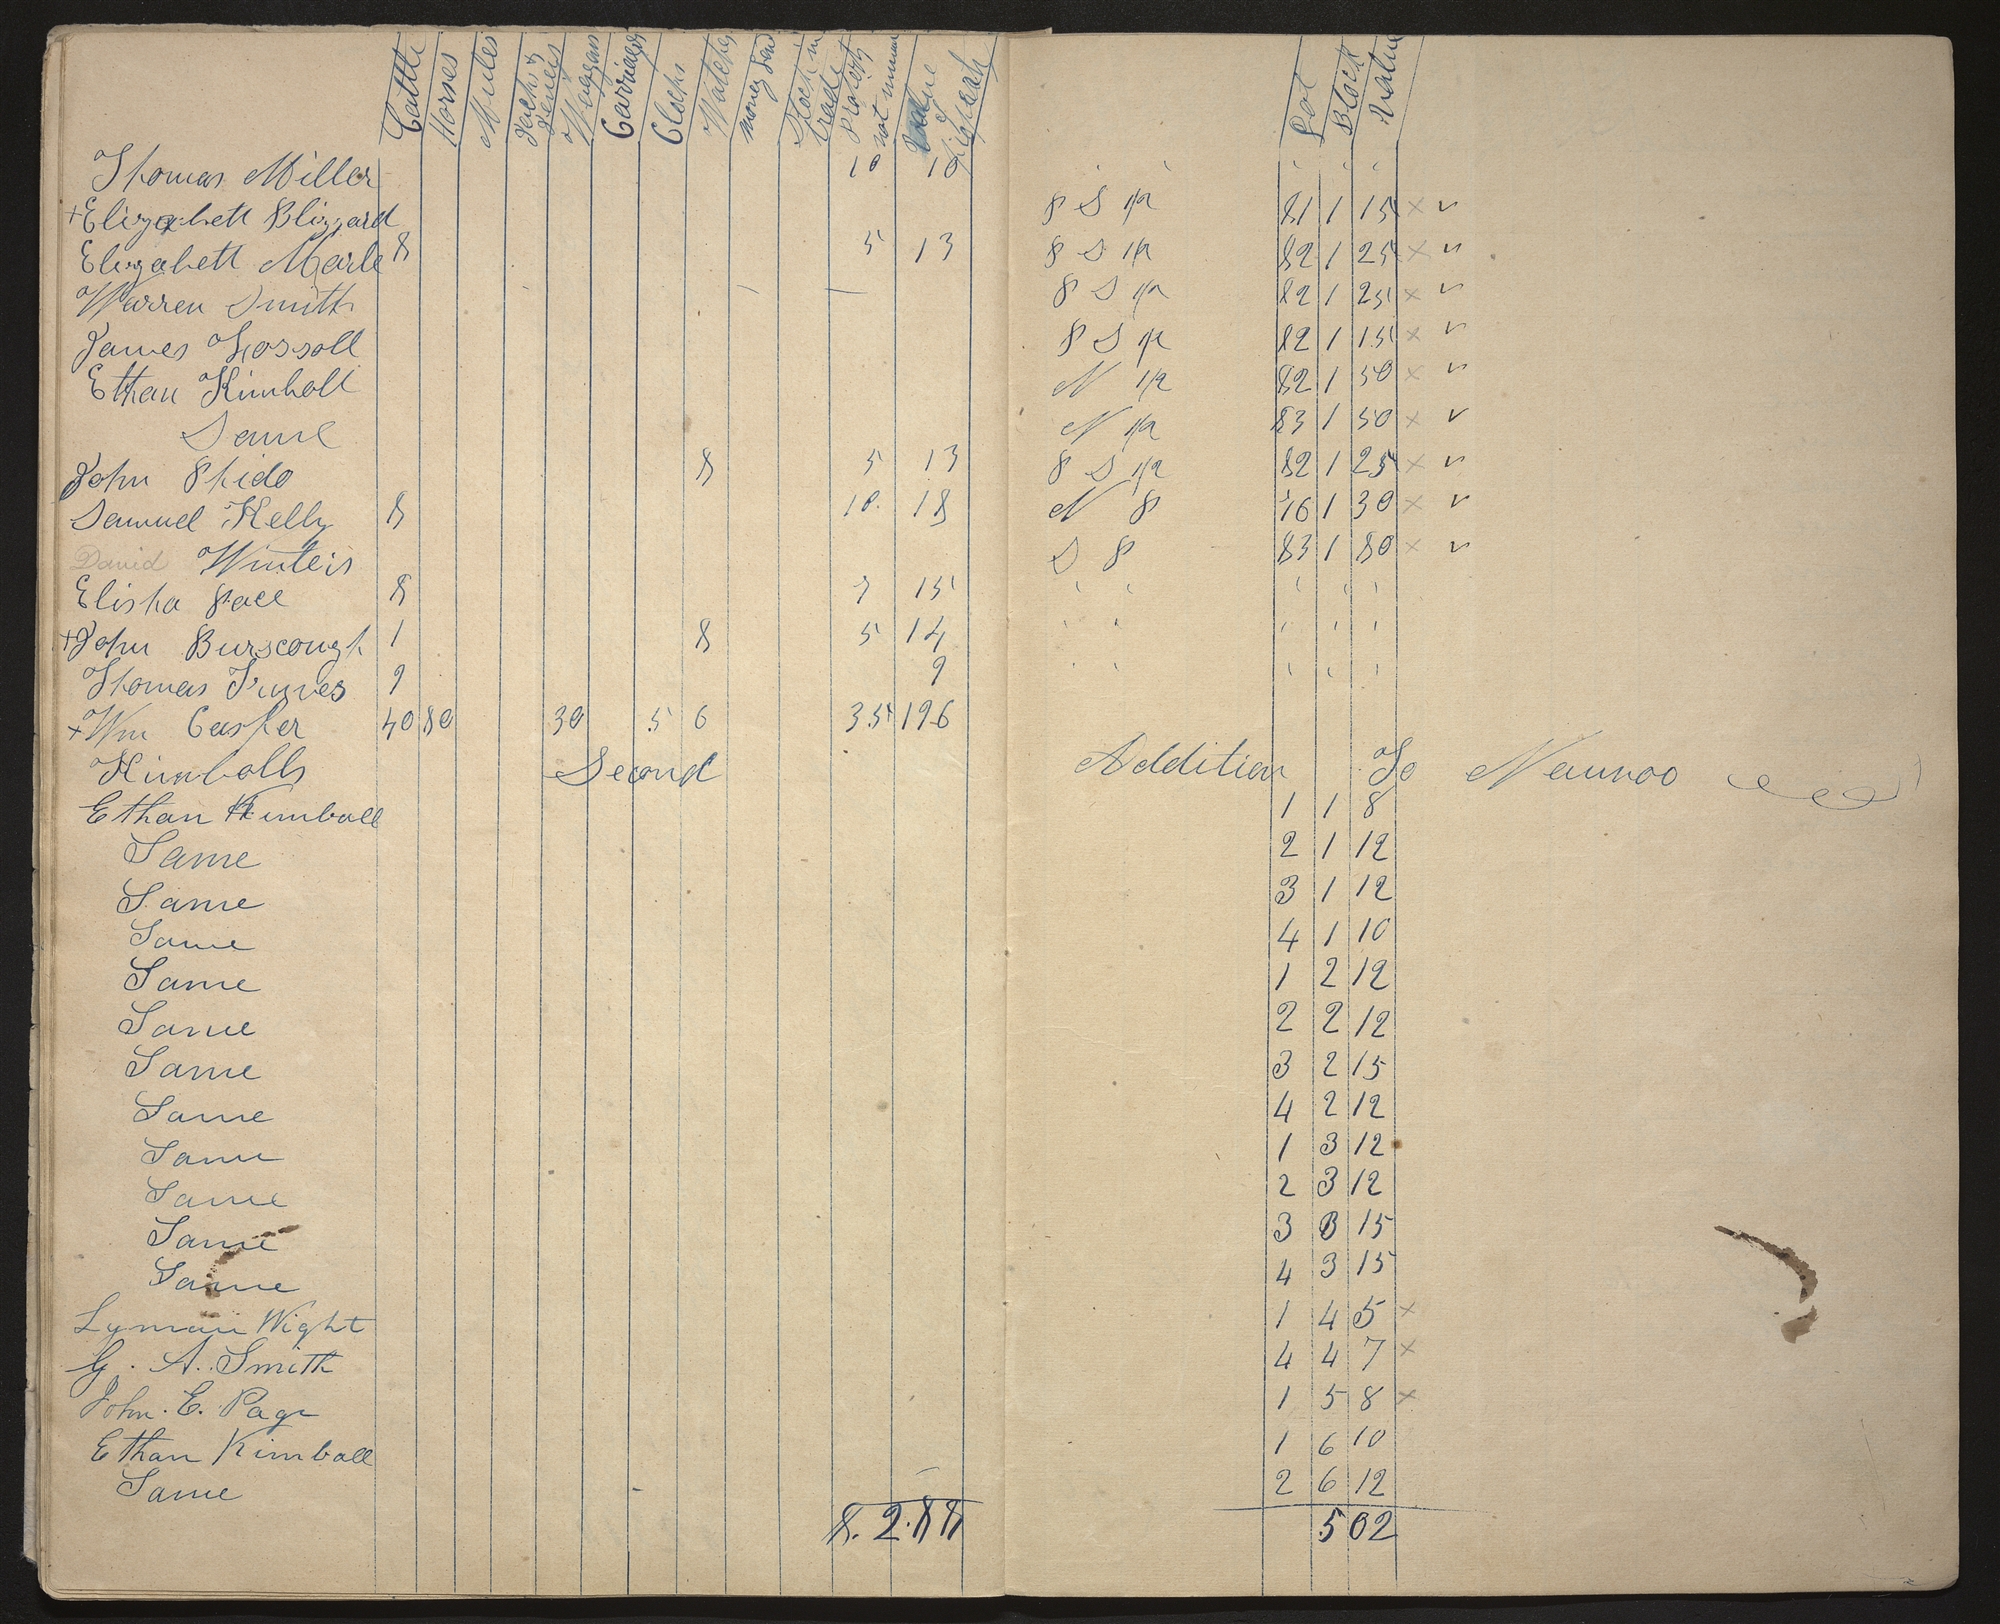 Cattle Horses Mules Jacks & Jennies Waggons Carriages Clocks Watches money Stock in trade Property not Value Lot Block Value
Thomas Miller 10 10 ' ' '
+ Elizabett Blizzard P S 1/2 81 1 15 × v
Elizabett Marle 8 5 13 P S 1/2 82 1 25 × v
Warren Smith P S 1/2 82 1 25 × v
James P S 1/2 82 1 15 × v
Ethan Kimball N 1/2 82 1 50 × v
Same N 1/2 83 1 50 × v
John 8 5 13 P S 1/2 82 1 25 × v
Samuel Kelly 8 10 18 N P 76 1 30 × v
David Winteis S P 83 1 80 × v
Elisha Pace 8 7 15 ' ' ' ' '
+ John Burscough 1 8 5 14 ' ' ' ' '
Thomas 9 9 ' ' ' ' '
+ Wm Casper 40 80 30 5 6 35 196
Kimballs Second Addition To Nauvoo
Ethan Kimball 1 1 8
Same 2 1 12
Same 3 1 12
Same 4 1 10
Same 1 2 12
Same 2 2 12
Same 3 2 15
Same 4 2 12
Same 1 3 12
Same 2 3 12
Same 3 3 15
Same 4 3 15
Lyman Wight 1 4 5 ×
G. A. Smith 4 4 7 ×
John. E. Page 1 5 8 ×
Ethan Kimball 1 6 10
Same 2 6 12
288 502